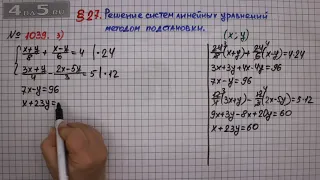 §27. Решение систем линейных уравнений
методом подстановки.
№ 1039. 3)
(x; y)
{ (x+y)/8 + (x-y)/6 = 4 |·24
(3x+y)/4 - (2x-5y)/3 = 5 |·12
7x-y=96
x+23y=
24/8(x+y)+24/6(x-y)=4·24
3x+3y+4x-4y=96
12/4(3x+y)-12/3(2x-5y)=5·12
9x+3y-8x+20y=60
x+23y=60